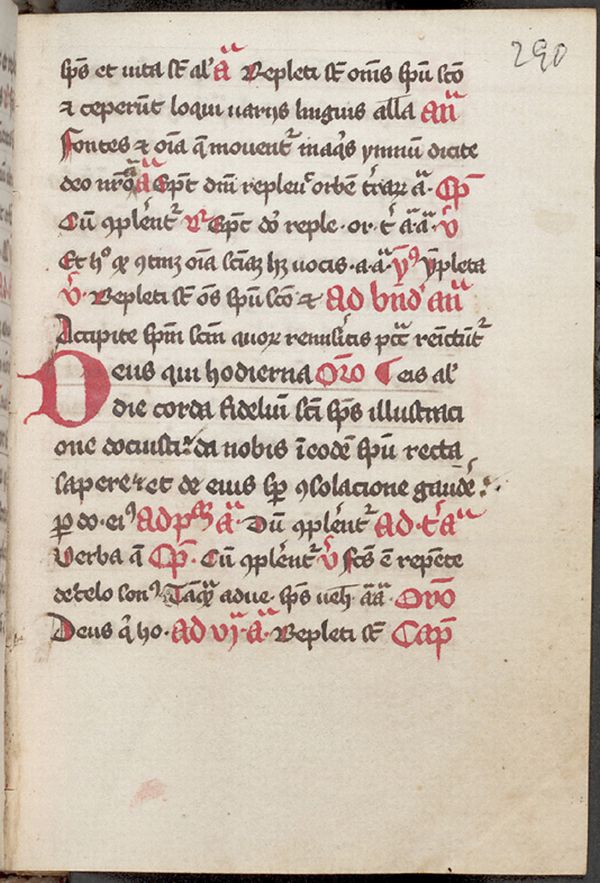 290
sp̄s et uita st̄ al' a̅ Repleti st̄ om̄s sp̄u sc̄o
⁊ ceperūt loqui uarijs linguis alla an̄
Fontes ⁊ oīa q̄ mouent᷑ in aq̄s ymnū dicite
deo nr̄o a̅ Sp̄c dn̄i repleu' orbē t'rar̄ a̅· Cp̄
Cū ꝯplēnt᷑ R Sp̄c do' reple· or· t' a· a̅· v̄
Et h° qd' ꝯtinȝ oīa sciāȝ hȝ uocis· a· a̅ ympleta
v̄· Repleti st̄ oēs sp̄u sc̄o ⁊ ad bn̄d' an̄
Accipite sp̄m sc̄m quor̄ remis'itis pcc̄ remitūt᷑
Deus qui hodierna Oro eis al'
die corda fideliū sc̄i sp̄s illustraci
one docuisti· da nobis ī eodē sp̄u recta
sapere· et de eius sp̄ ꝯsolacione gaudē'·
p̄ do· ei° ad pm̄ȝ a̅· Dū ꝯplēnt᷑ ad t' a̅
Verba a̅ Cp̄· Cū ꝯplēnt᷑ v̄ fc̄s ē repente
de celo son° Tāq̄ adue· sp̄s ueh· a̅a̅· Oro
Deus q̄ ho· ad vj· a̅· Repleti st̄ Cap̄